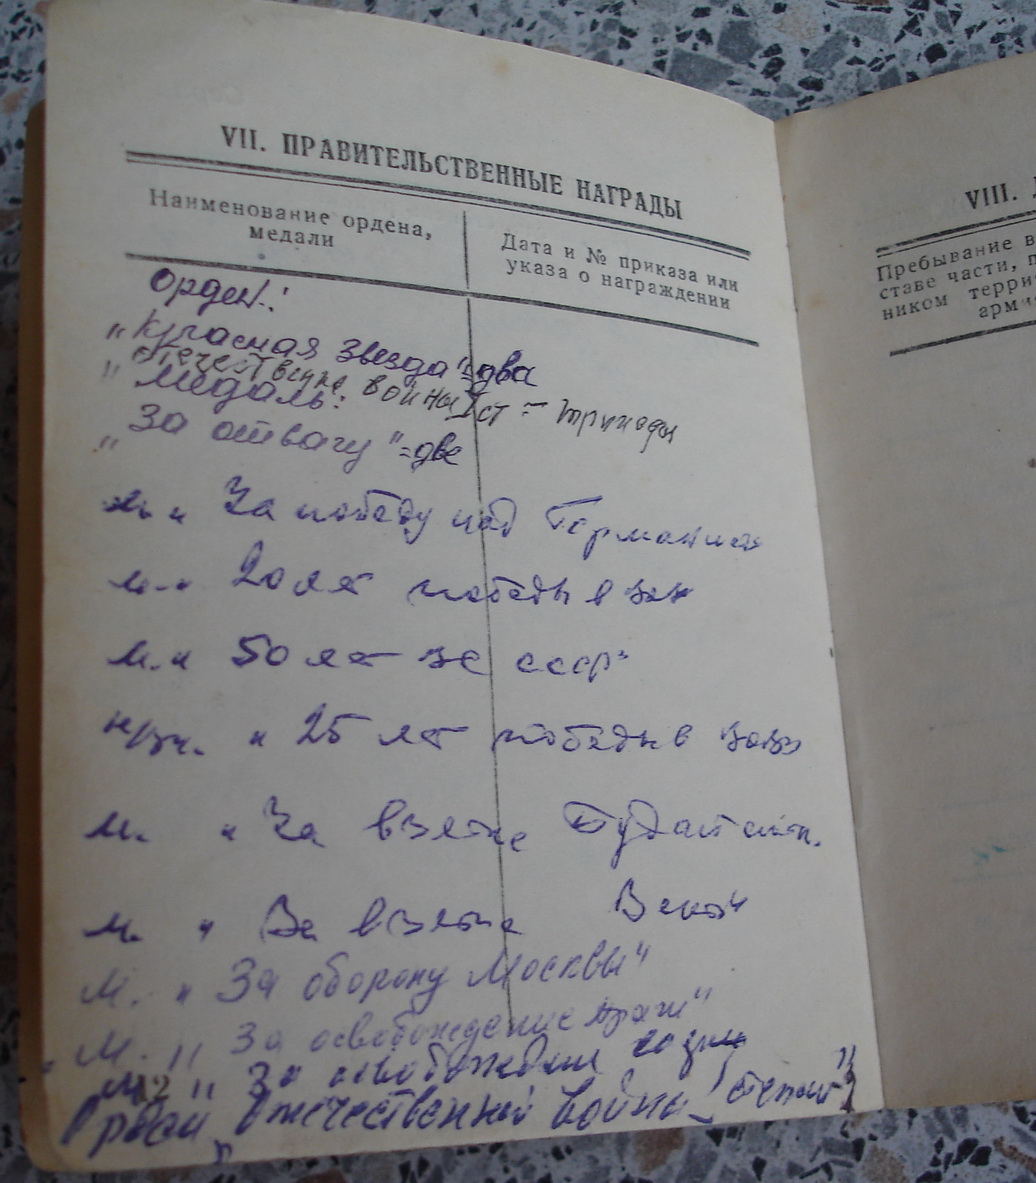 VII. ПРАВИТЕЛЬСТВЕННЫЕ НАГРАДЫ
Наименование ордена,
медали
Дата и № приказа или
указа о награждении
Орден:
"Красная Звезда"=два
Отечествен войны I ст - трижды
"Медаль:
"За отвагу"=две
м. " За победу над Германия
м. " 20 лет победы в вов
м. " 50 лет вс ссср"
" 25 лет победы в вов
м. " За взятие Будапешт.
м. " За взятие Вены"
М. " За оборону Москвы"
М. " За освобождение Праги"
" За
Орден "Отечественной войны степени"
VIII.
Пребывание в
ставе части,
ником